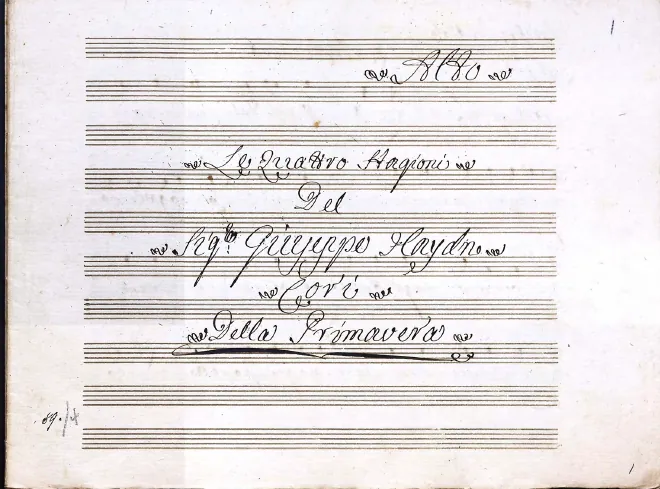 1
Alto
Le Quattro Stagioni
Del
Sigr. Giuseppe Haydn
Cori
Della Primavera
1